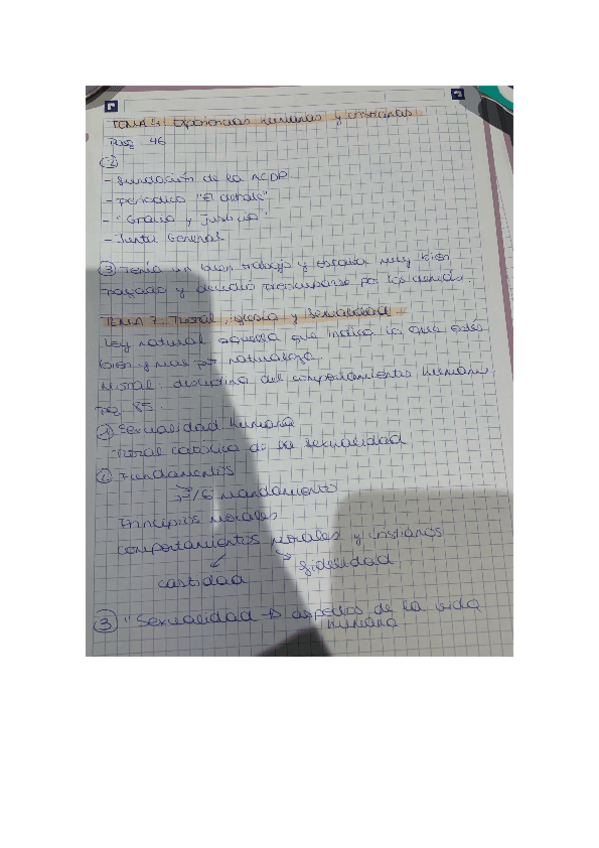 TEMA 4: Experiencias humanas y cristianas
Pag 46
②
- Fundación de la ACDP.
- Periodico "El debate"
- "Gracia y justicia"
- Junta General
③ Tenía un buen trabajo y estaba muy bien
pagado y decidió preocuparse por los demás.
TEMA 7. Moral, iglesia y sexualidad
Ley natural: aquella que indica lo que está
bien y mal por naturaleza.
Moral: disciplina del comportamientos humano
Pag 85.
① Sexualidad humana
Moral católica de la sexualidad
② Fundamentos
/6 mandamiento
Principios morales
comportamientos morales y cristianos
castidad fidelidad
③ "Sexualidad → aspectos de la vida
humana